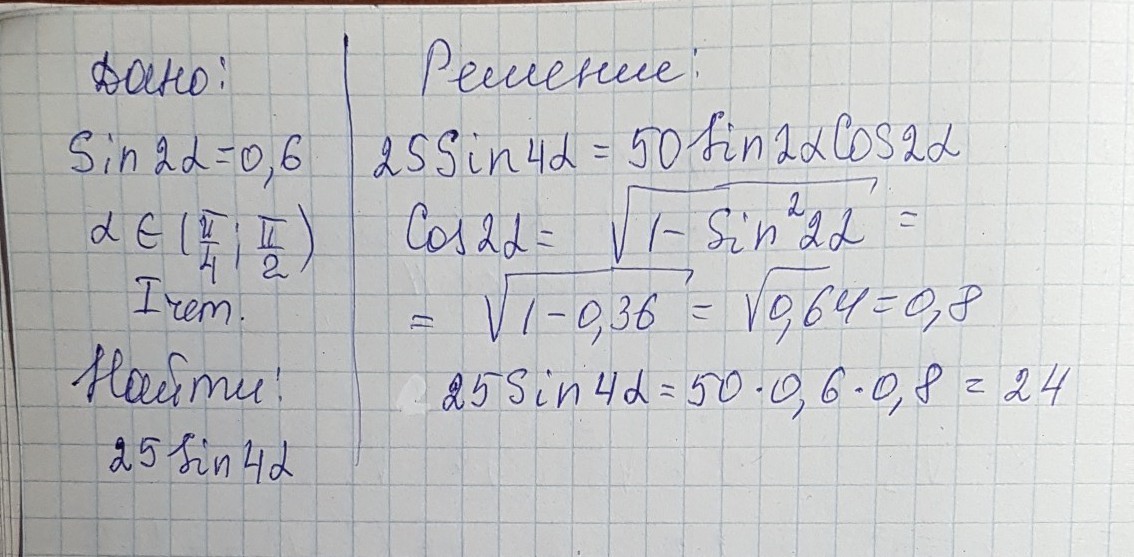 Дано:
Sin2α=0,6
α ∈ (π/4; π/2)
I чет.
Найти:
25 Sin4α
Решение:
25Sin4α = 50 Sin2αCos2α
Cos2α = √(1 - Sin²2α) =
= √(1-0,36) = √0,64 = 0,8
25Sin4α = 50·0,6·0,8 = 24